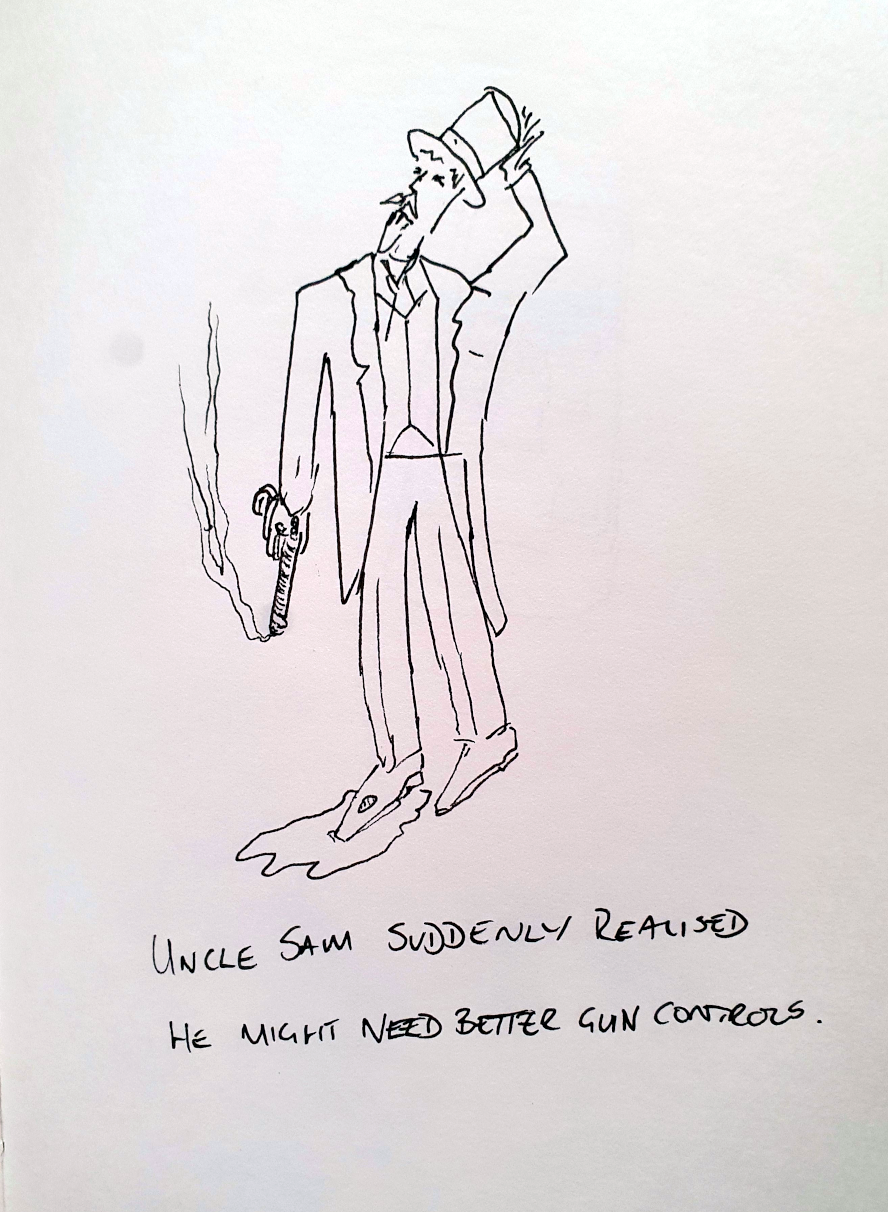 UNCLE SAM SUDDENLY REALISED
HE MIGHT NEED BETTER GUN CONTROLS.